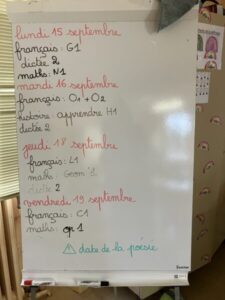 lundi 15 septembre
français : G1
dictée 2
maths : N1
mardi 16 septembre
français : O1 + O2
histoire : apprendre H1
dictée 2
jeudi 18 septembre
français : L1
maths : Geom 1
dictée 2
vendredi 19 septembre
français : C1
maths : 1
date de la poésie